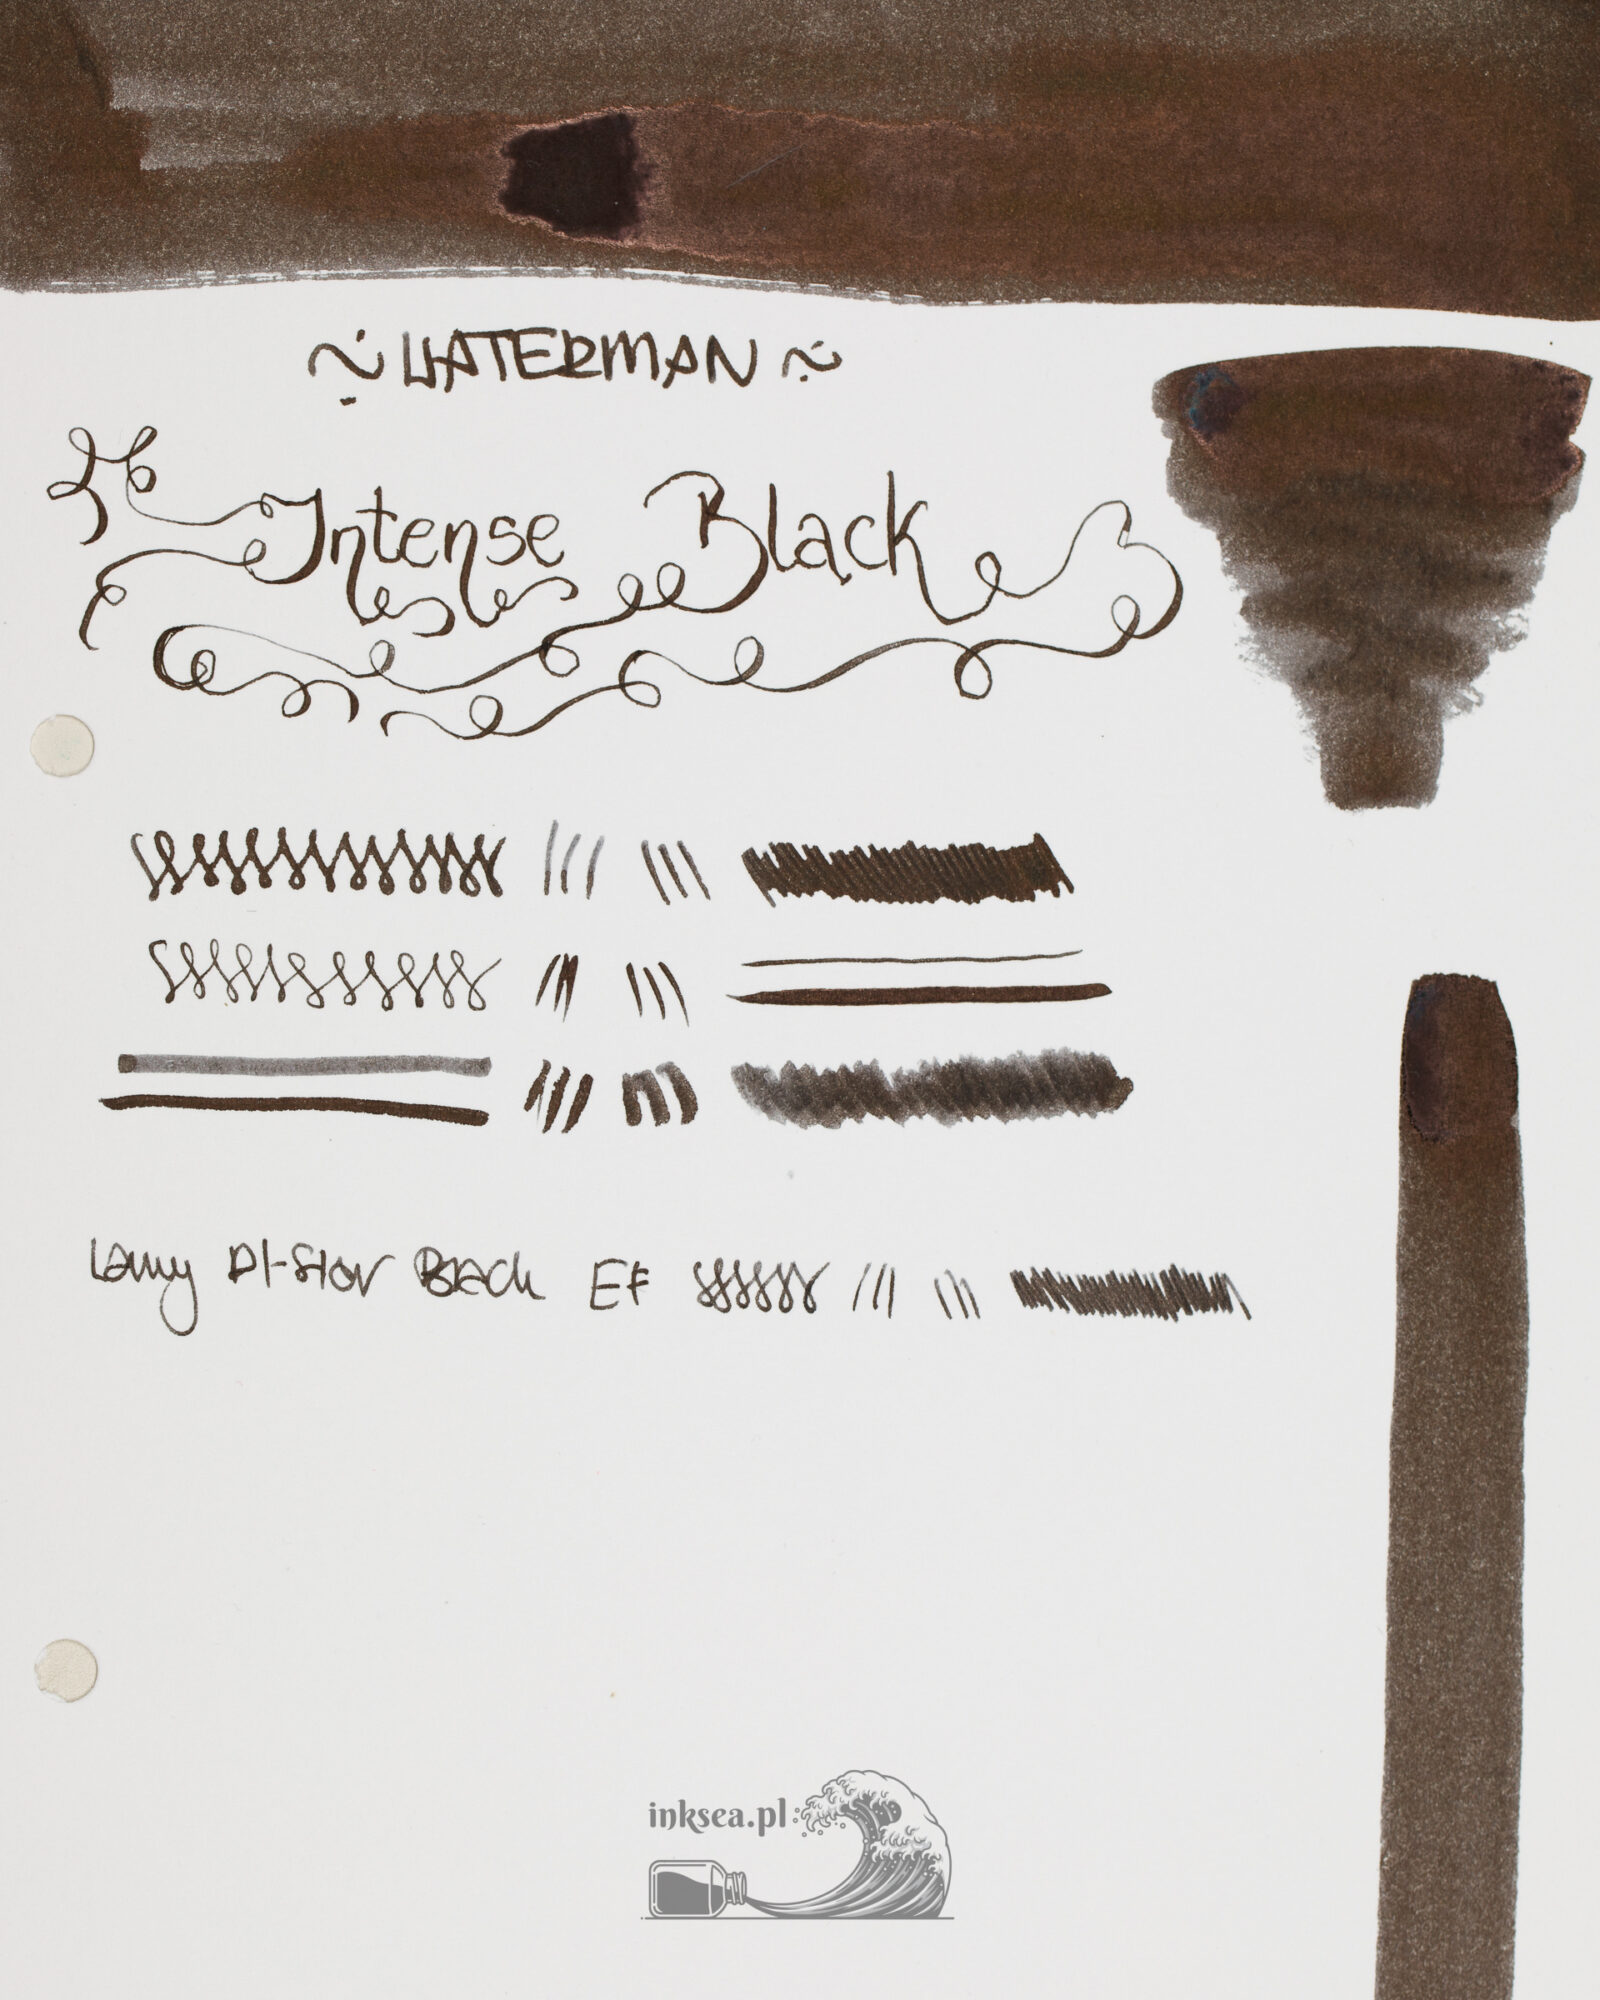 ~ WATERMAN ~
Intense Black
Lamy Al-Star Black EF
inksea.pl